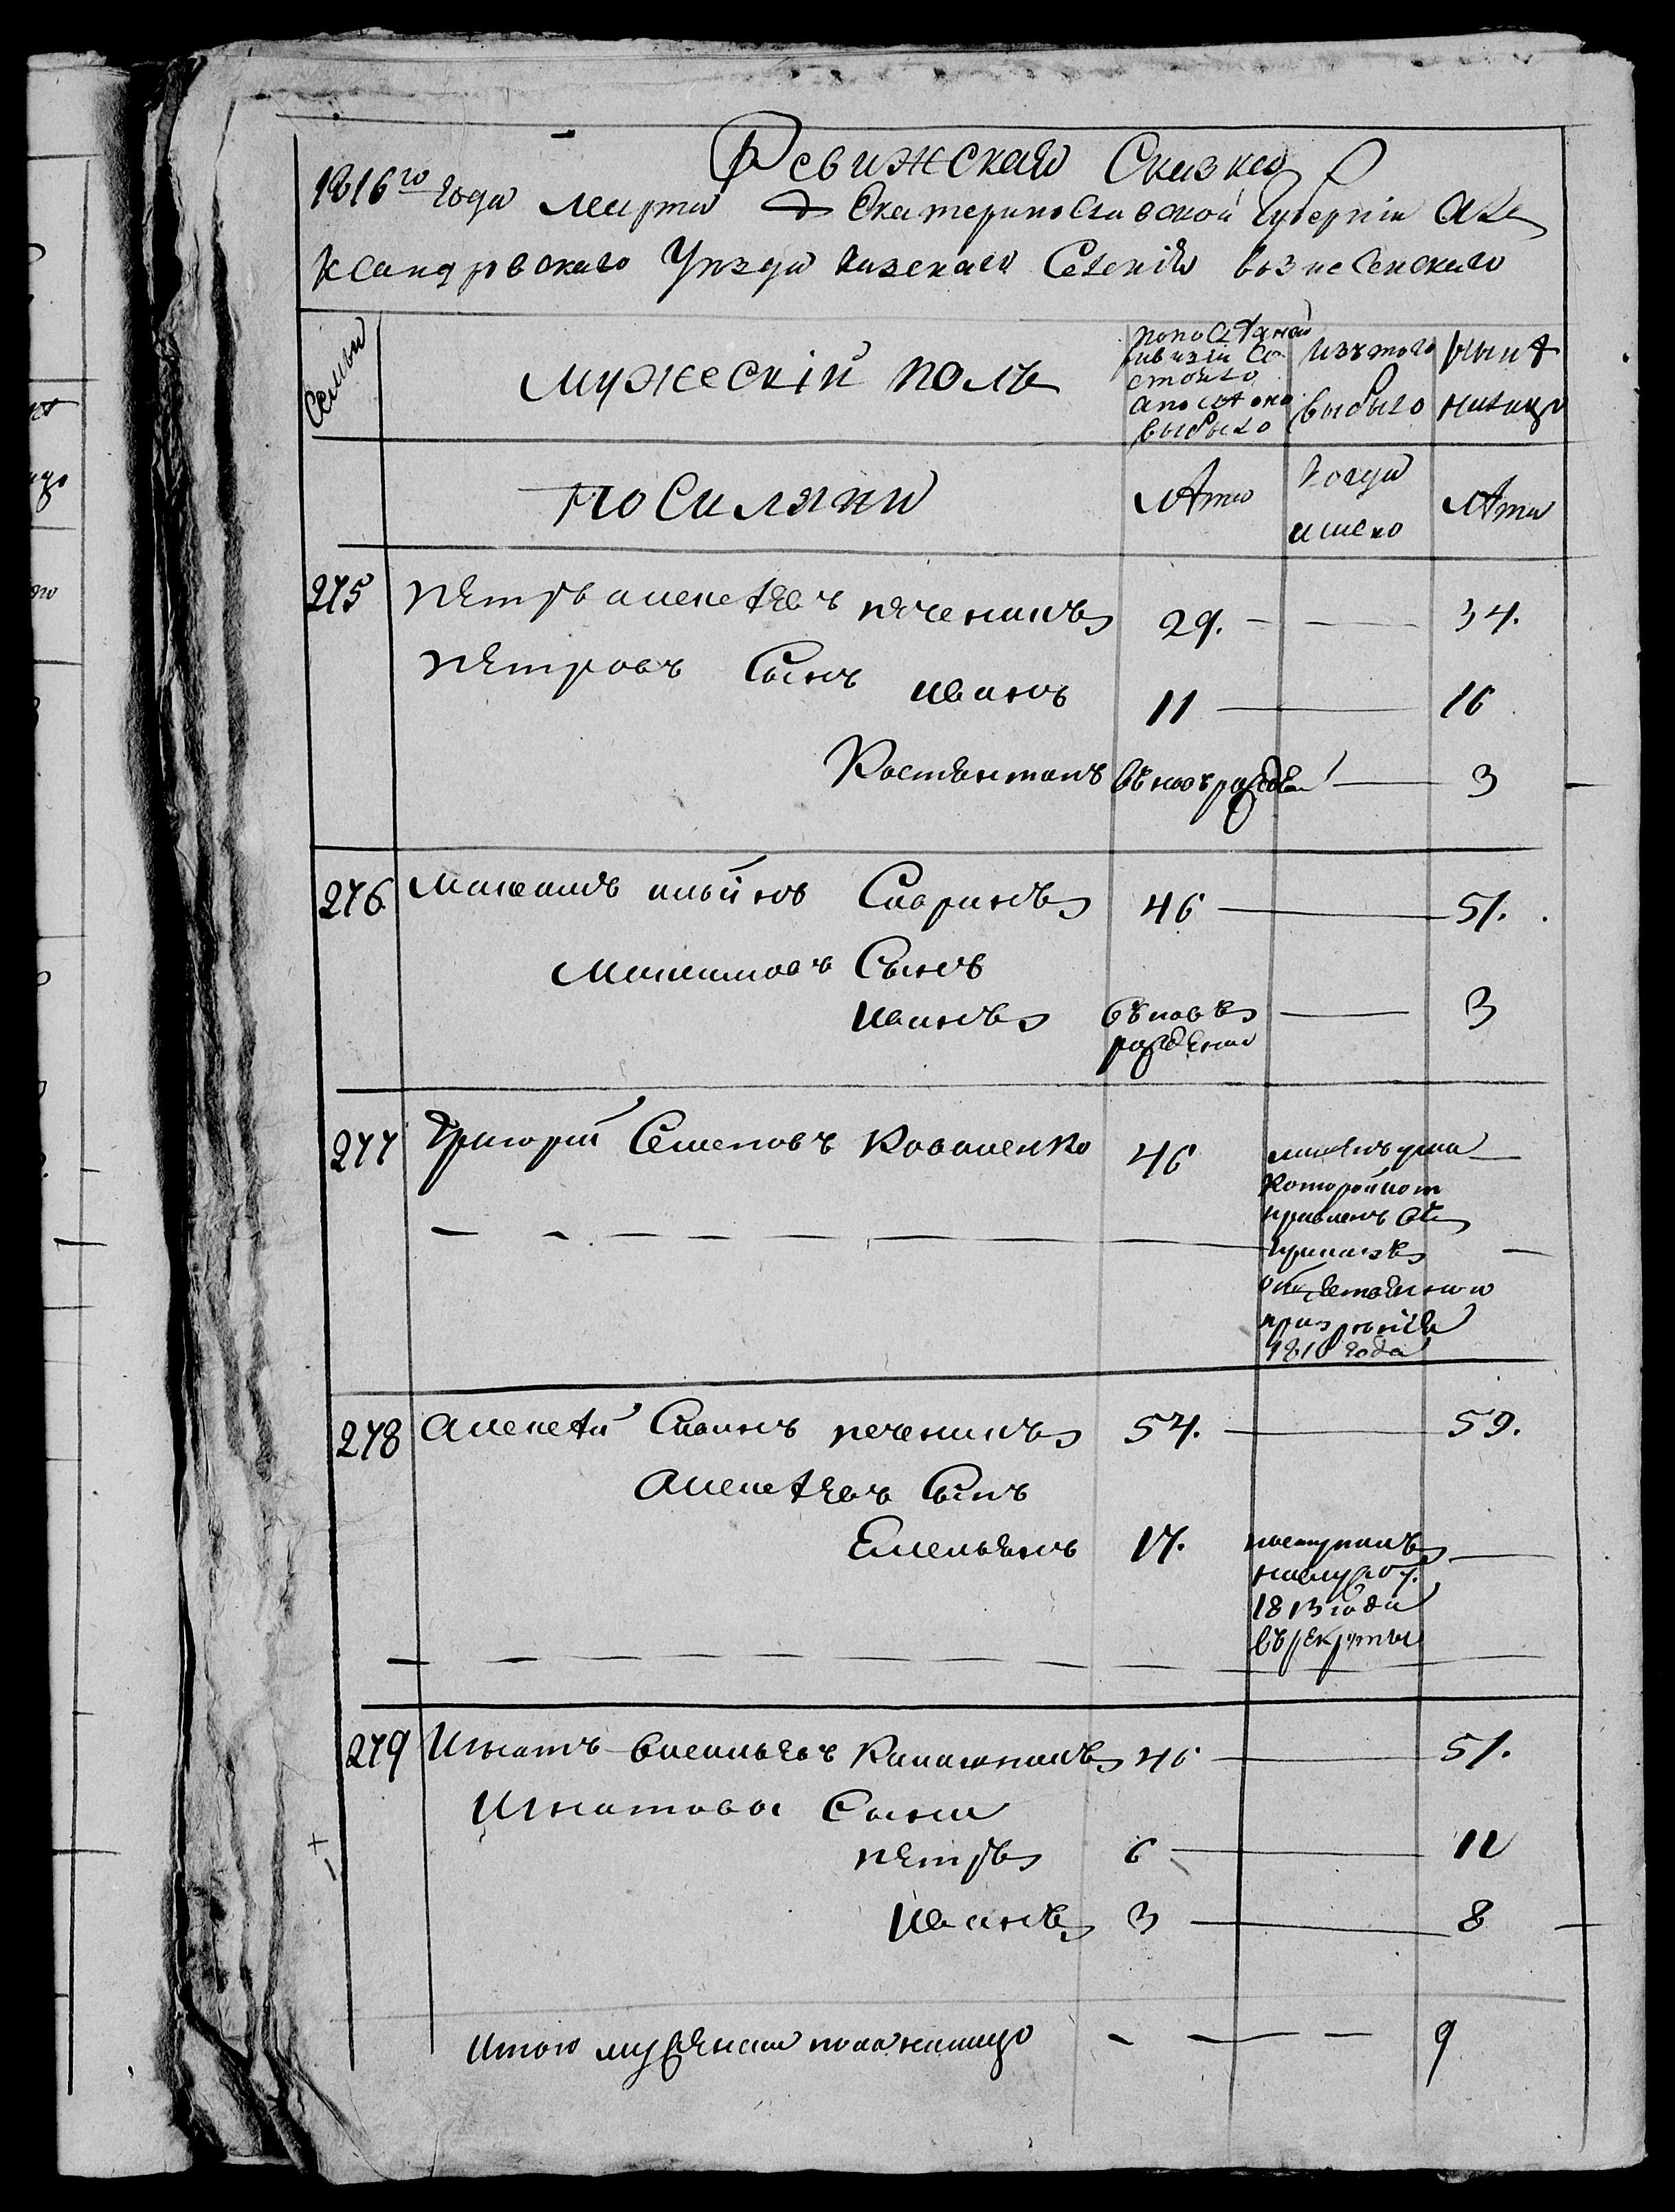 Ревижская Сказка
1816го года марта Екатеринославской Губерніи Але
ксандровскаго Уезда казенаго Селенія вознесенскаго
Семьи
мужескій полъ
попоследней ревизіи состояло
апосле оно выбыло
изътого выбыло
ныне налицо
поселяни
лета
когда имено
лета
275 петръ алексеевъ печенинъ 29. 34.
петровъ Сынъ
иванъ 11 16
Костянтинъ въновъ рожденъ 3
276 Максимъ ильинъ Сваринъ 46 51.
Максимовъ Сынъ
иванъ въновъ рождени 3
277 Григорій Семеновъ Коваленко 46
Которой от
правленъ въ
приказъ
общественнаго
призренія
1810 года
278 алексей Савинъ печенинъ 54. 59.
алексеевъ Сынъ
Емельянъ 17.
поступилъ
1813 года
въ рекруты
279 Игнатъ васильевъ Калашниковъ 46 51.
Игнатовы Сыни
петръ 6 11
иванъ 3 8
итого мужеска пола налицо 9